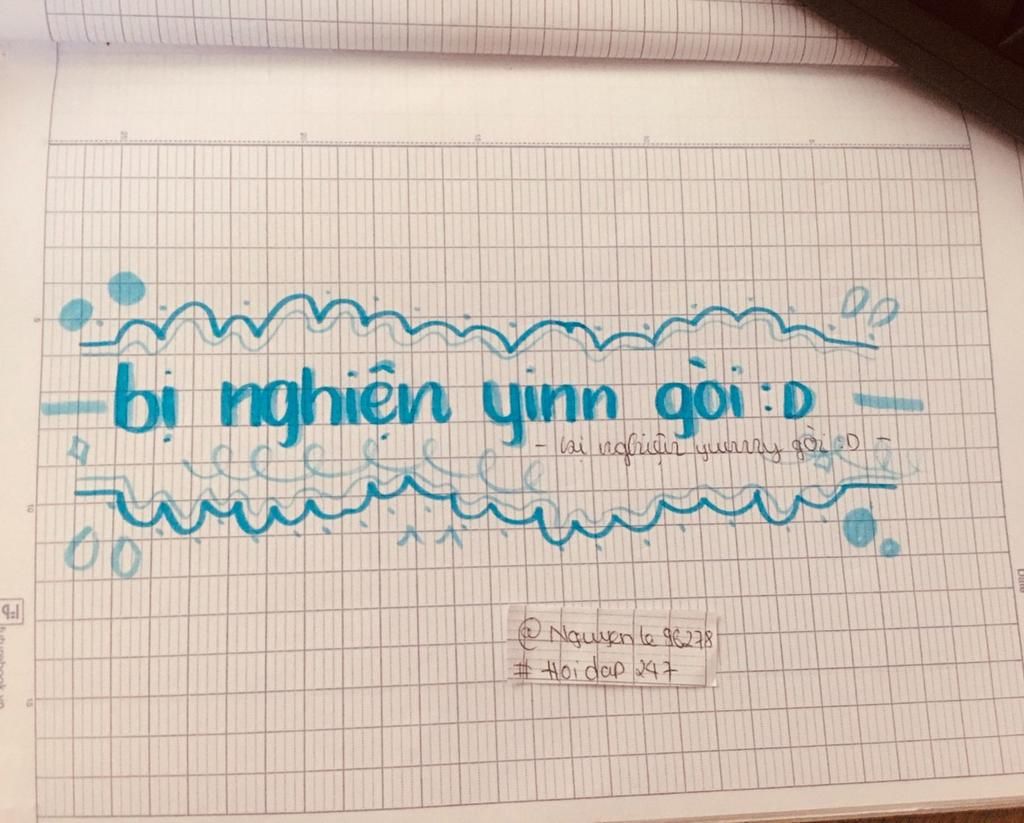 bị nghiện yinn gòi :D
- bị nghiện yummy gòi :D -
@Nguyenle96278
# Hoidap 247